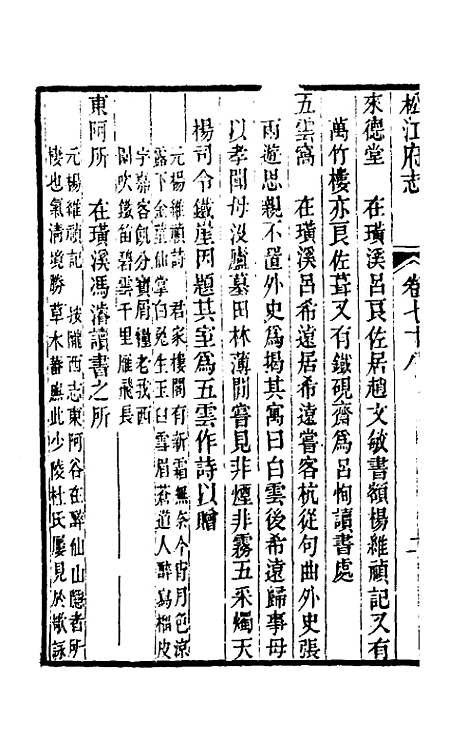 松江府志 卷七十八
來德堂 在璜溪呂良佐居趙文敏書額楊維禎記又有
萬竹樓亦良佐葺又有鐵硯齋爲呂恂讀書處
五雲窩 在璜溪呂希遠居希遠嘗客杭從句曲外史張
雨遊思親不置外史爲揭其寓曰白雲後希遠歸事母
以孝聞母沒廬墓田林薄閒嘗見非煙非霧五采燭天
楊司令鐵崖因題其室爲五雲作詩以贈
元楊維禎詩 君家樓閣有新霜無奈今宵月色涼
露下金莖仙掌白兔生玉臼雪眉蒼道人醉寫榴皮
字嘉客飢分寶屑糧老我西
閣吹鐵笛碧雲千里雁飛長
東阿所 在璜溪馮濬讀書之所
元楊維禎記 按隴西志東阿谷在醉仙山隱者所
棲也氣淸境勝草木蕃廡此少陵杜氏屢見於歌詠